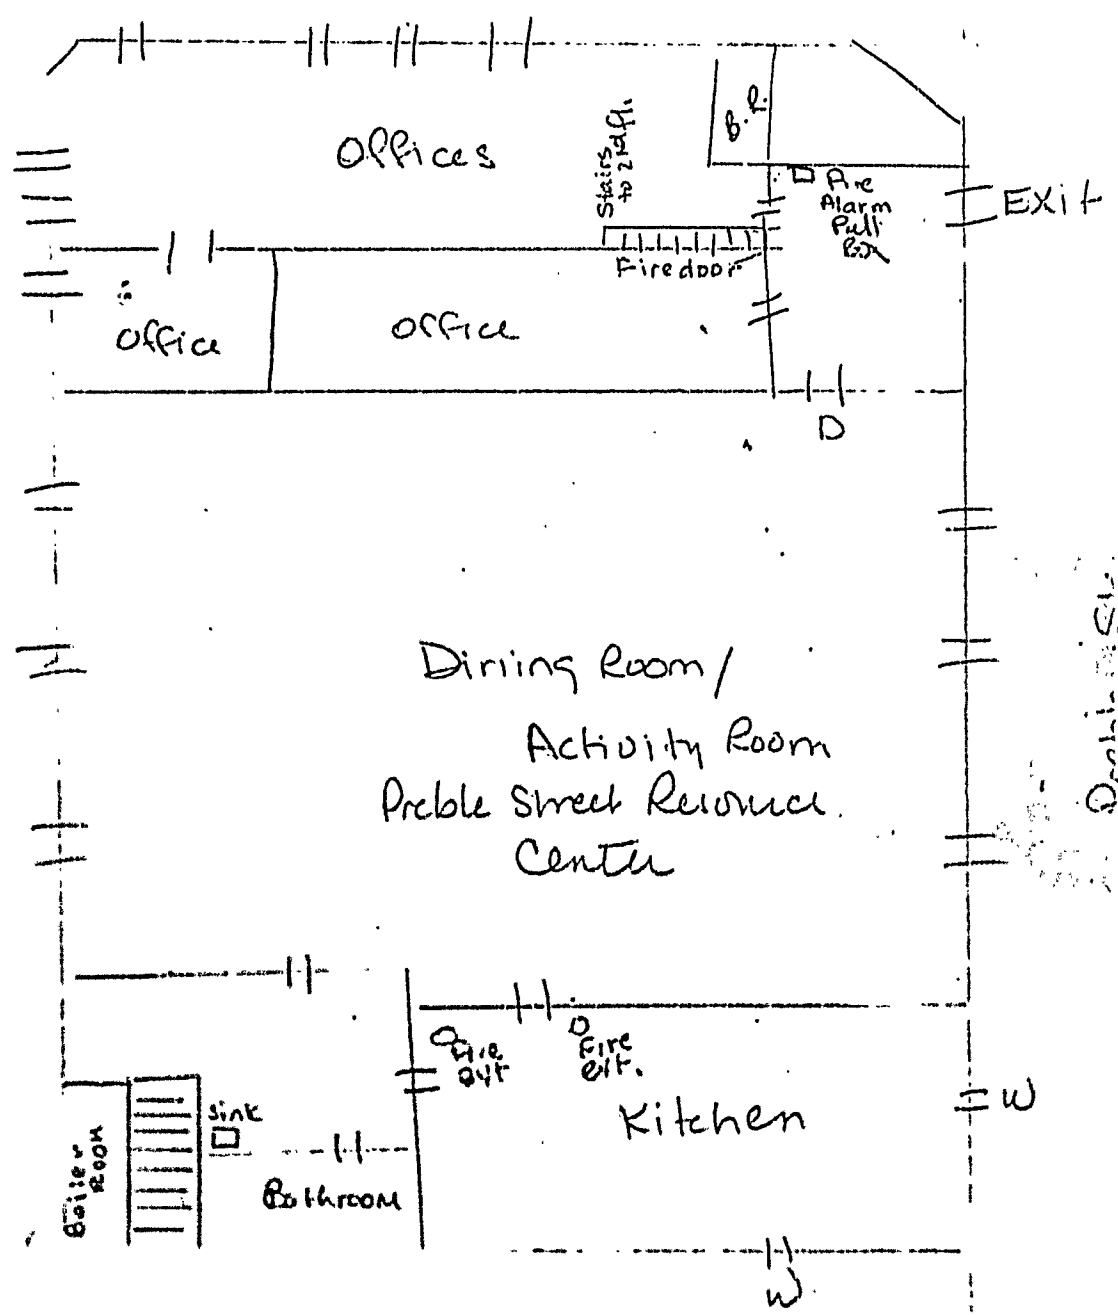 Offices
B.R.
Stairs
to 2nd fl.
Fire
Alarm
Pull
Box
EXit
Firedoor
Office
Office
D
Dining Room/
Activity Room
Preble Street Resource
Center
Fire
ext
Fire
ext.
Kitchen
W
Sink
Boiler
Room
Bathroom
W